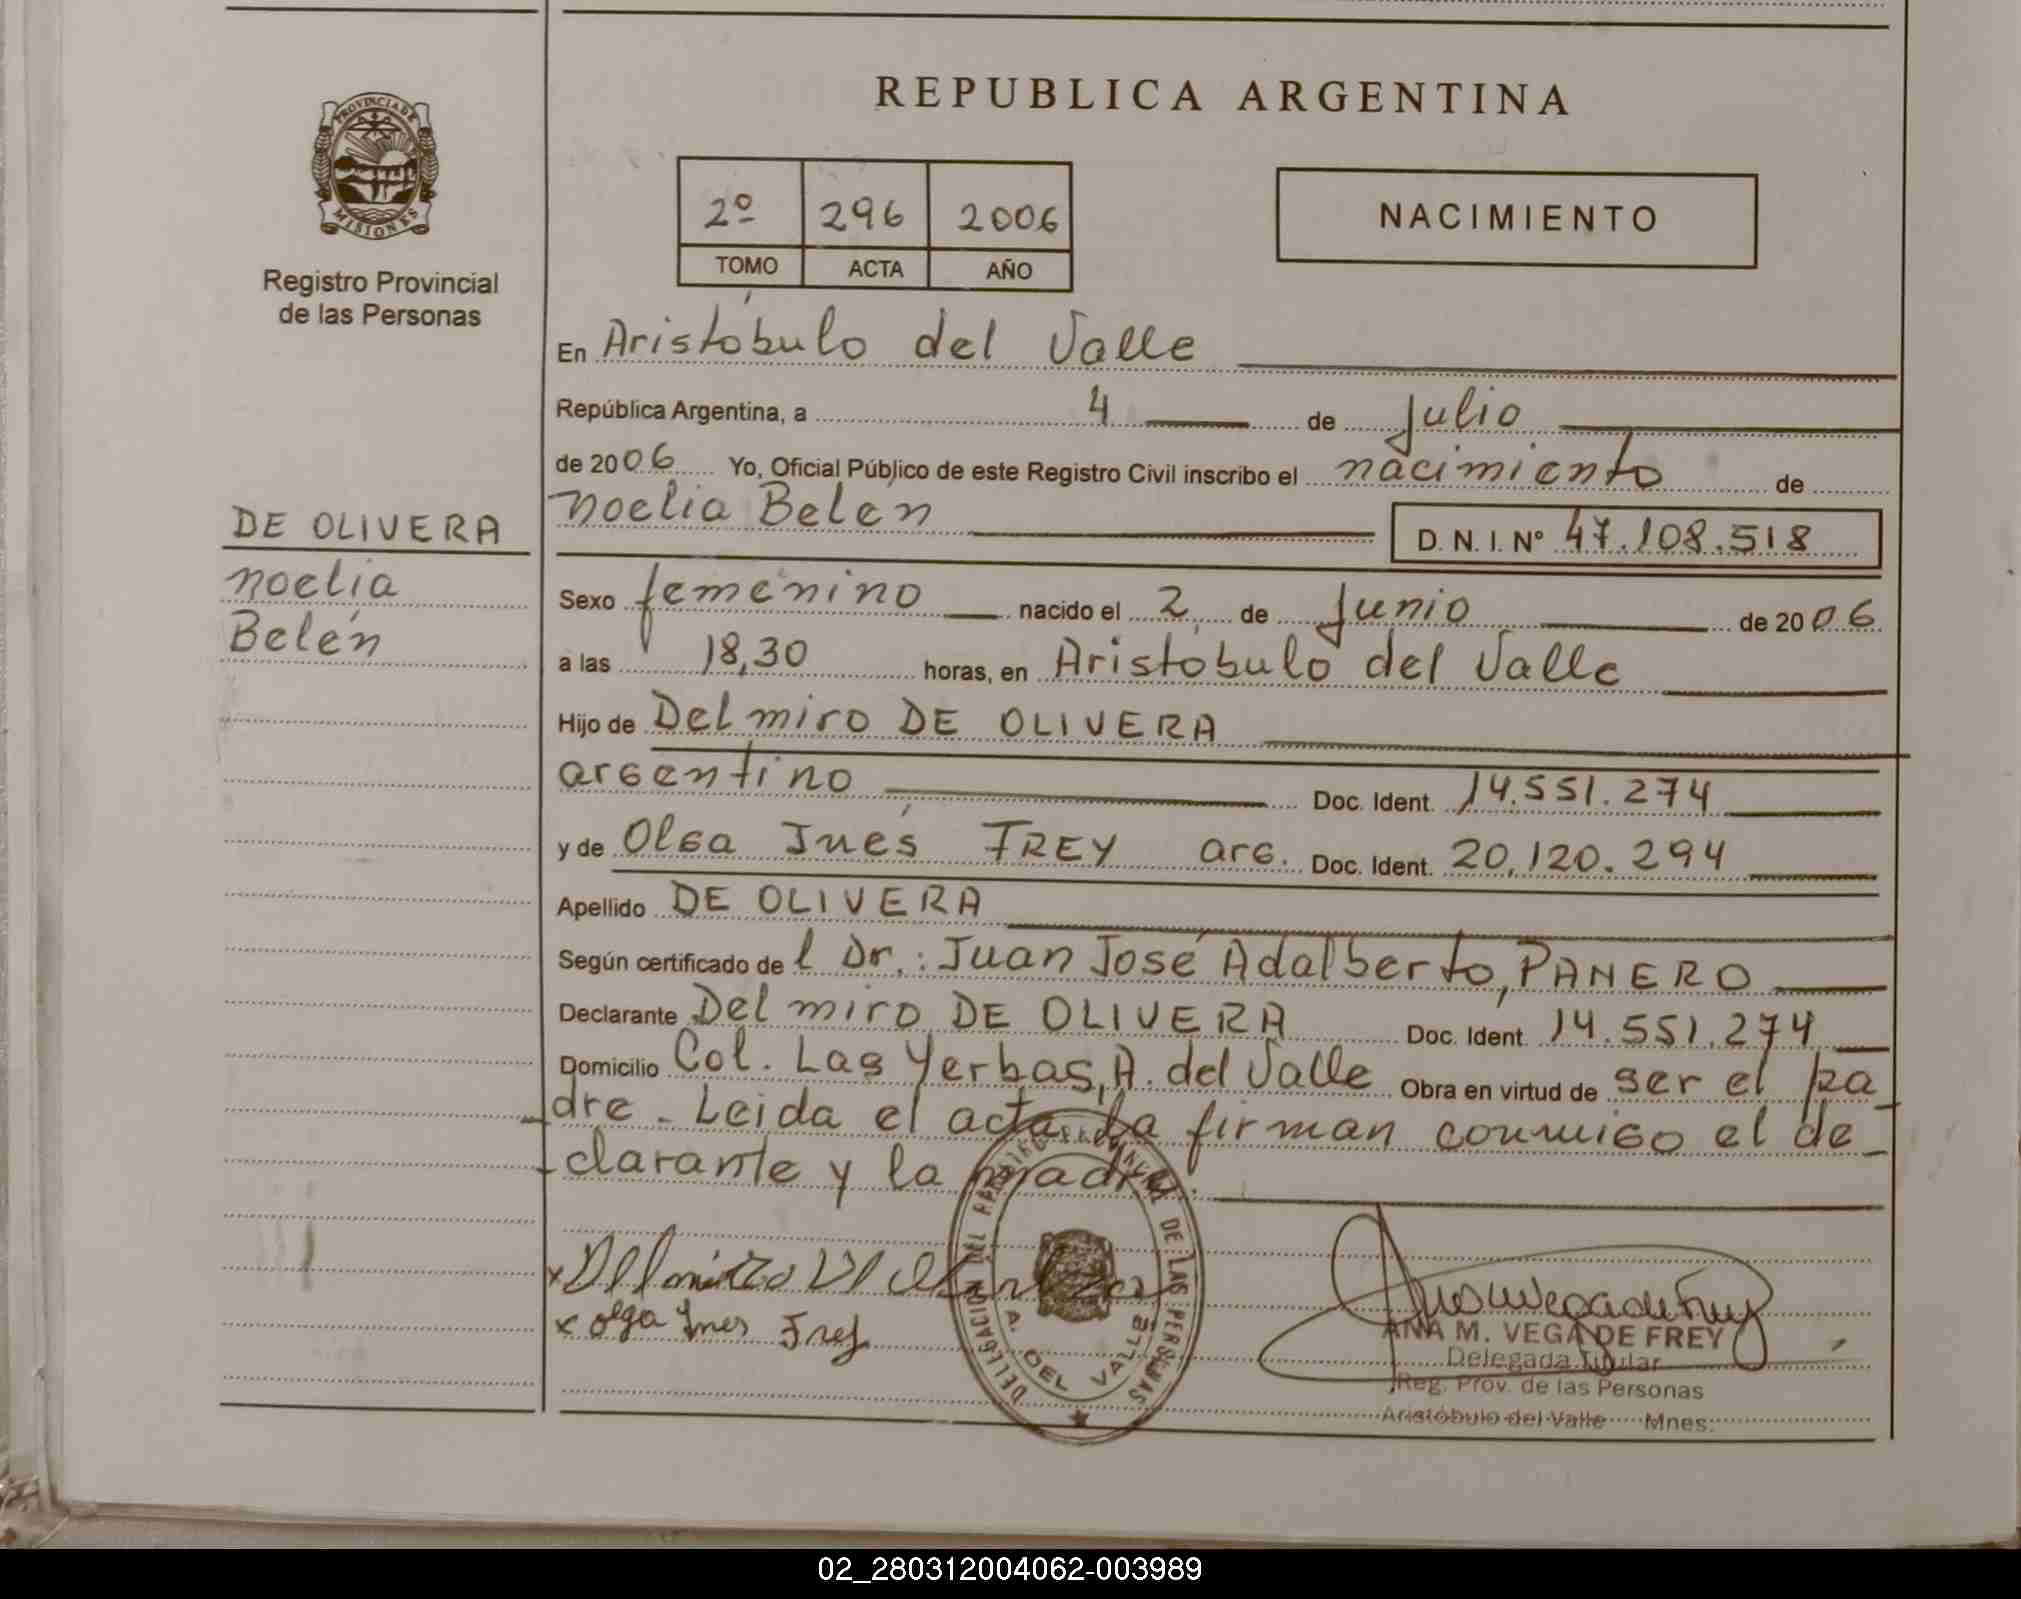 REPUBLICA ARGENTINA
PROVINCIA DE MISIONES
Registro Provincial
de las Personas
2º 296 2006
TOMO ACTA AÑO
NACIMIENTO
En Aristóbulo del Valle
República Argentina, a 4 de Julio
de 2006 Yo, Oficial Público de este Registro Civil inscribo el nacimiento de
DE OLIVERA
Noelia
Belén
Noelia Belen D. N. I. Nº 47.108.518
Sexo femenino nacido el 2 de Junio de 2006
a las 18,30 horas, en Aristobulo del Valle
Hijo de Delmiro DE OLIVERA
argentino Doc. Ident. 14.551.274
y de Olga Inés FREY arg. Doc. Ident. 20.120.294
Apellido DE OLIVERA
Según certificado del Dr.: Juan José Adalberto, PANERO
Declarante Delmiro DE OLIVERA Doc. Ident. 14.551.274
Domicilio Col. Las Yerbas, A. del Valle Obra en virtud de ser el pa
dre. Leida el acta la firman conmigo el de
clarante y la madre.
x Delmiro De Olivera
x olga Ines Frey
DELEGACION DEL REGISTRO PROVINCIAL DE LAS PERSONAS
A. DEL VALLE
Ana M Vega de Frey
ANA M. VEGA DE FREY
Delegada Titular
Reg. Prov. de las Personas
Aristóbulo del Valle Mnes.
02_280312004062-003989